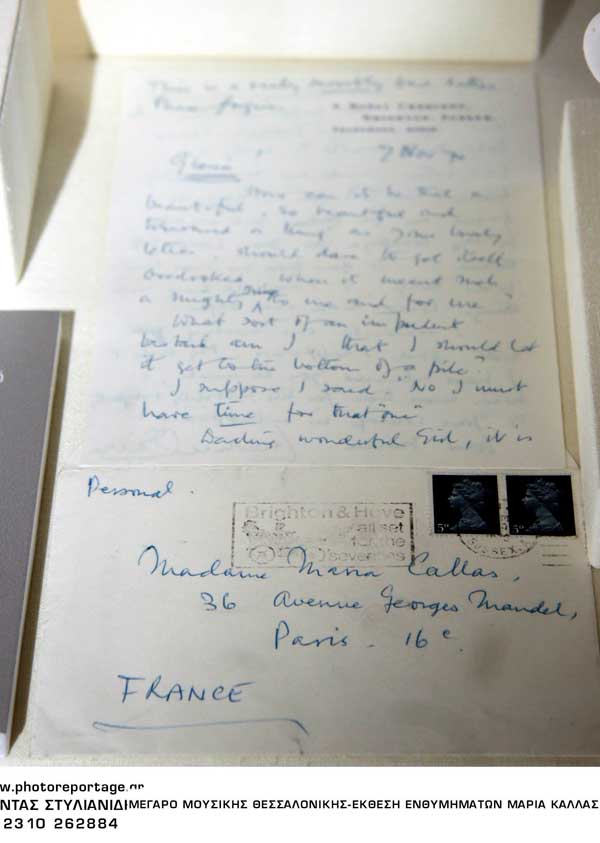 This is a
Please forgive
7 Nov
How can it be that a
beautiful, so beautiful and
a thing as your lovely
letter should dare to get itself
overlooked, when it meant such
a mighty thing to me and for me
What sort of an impudent
am I that I should let
it get to the bottom of a pile?
I suppose I said "No I must
have time for that "one"
Darling wonderful Girl, it is
Personal.
Brighton & Hove
all set
for the
seventies
5P 5P
SUSSEX
Madame Maria Callas,
36 Avenue Georges Mandel,
Paris - 16e.
FRANCE
w.photoreportage.gr
ΝΤΑΣ ΣΤΥΛΙΑΝΙΔΙ ΜΕΓΑΡΟ ΜΟΥΣΙΚΗΣ ΘΕΣΣΑΛΟΝΙΚΗΣ-ΕΚΘΕΣΗ ΕΝΘΥΜΗΜΑΤΩΝ ΜΑΡΙΑ ΚΑΛΛΑΣ
2310 262884